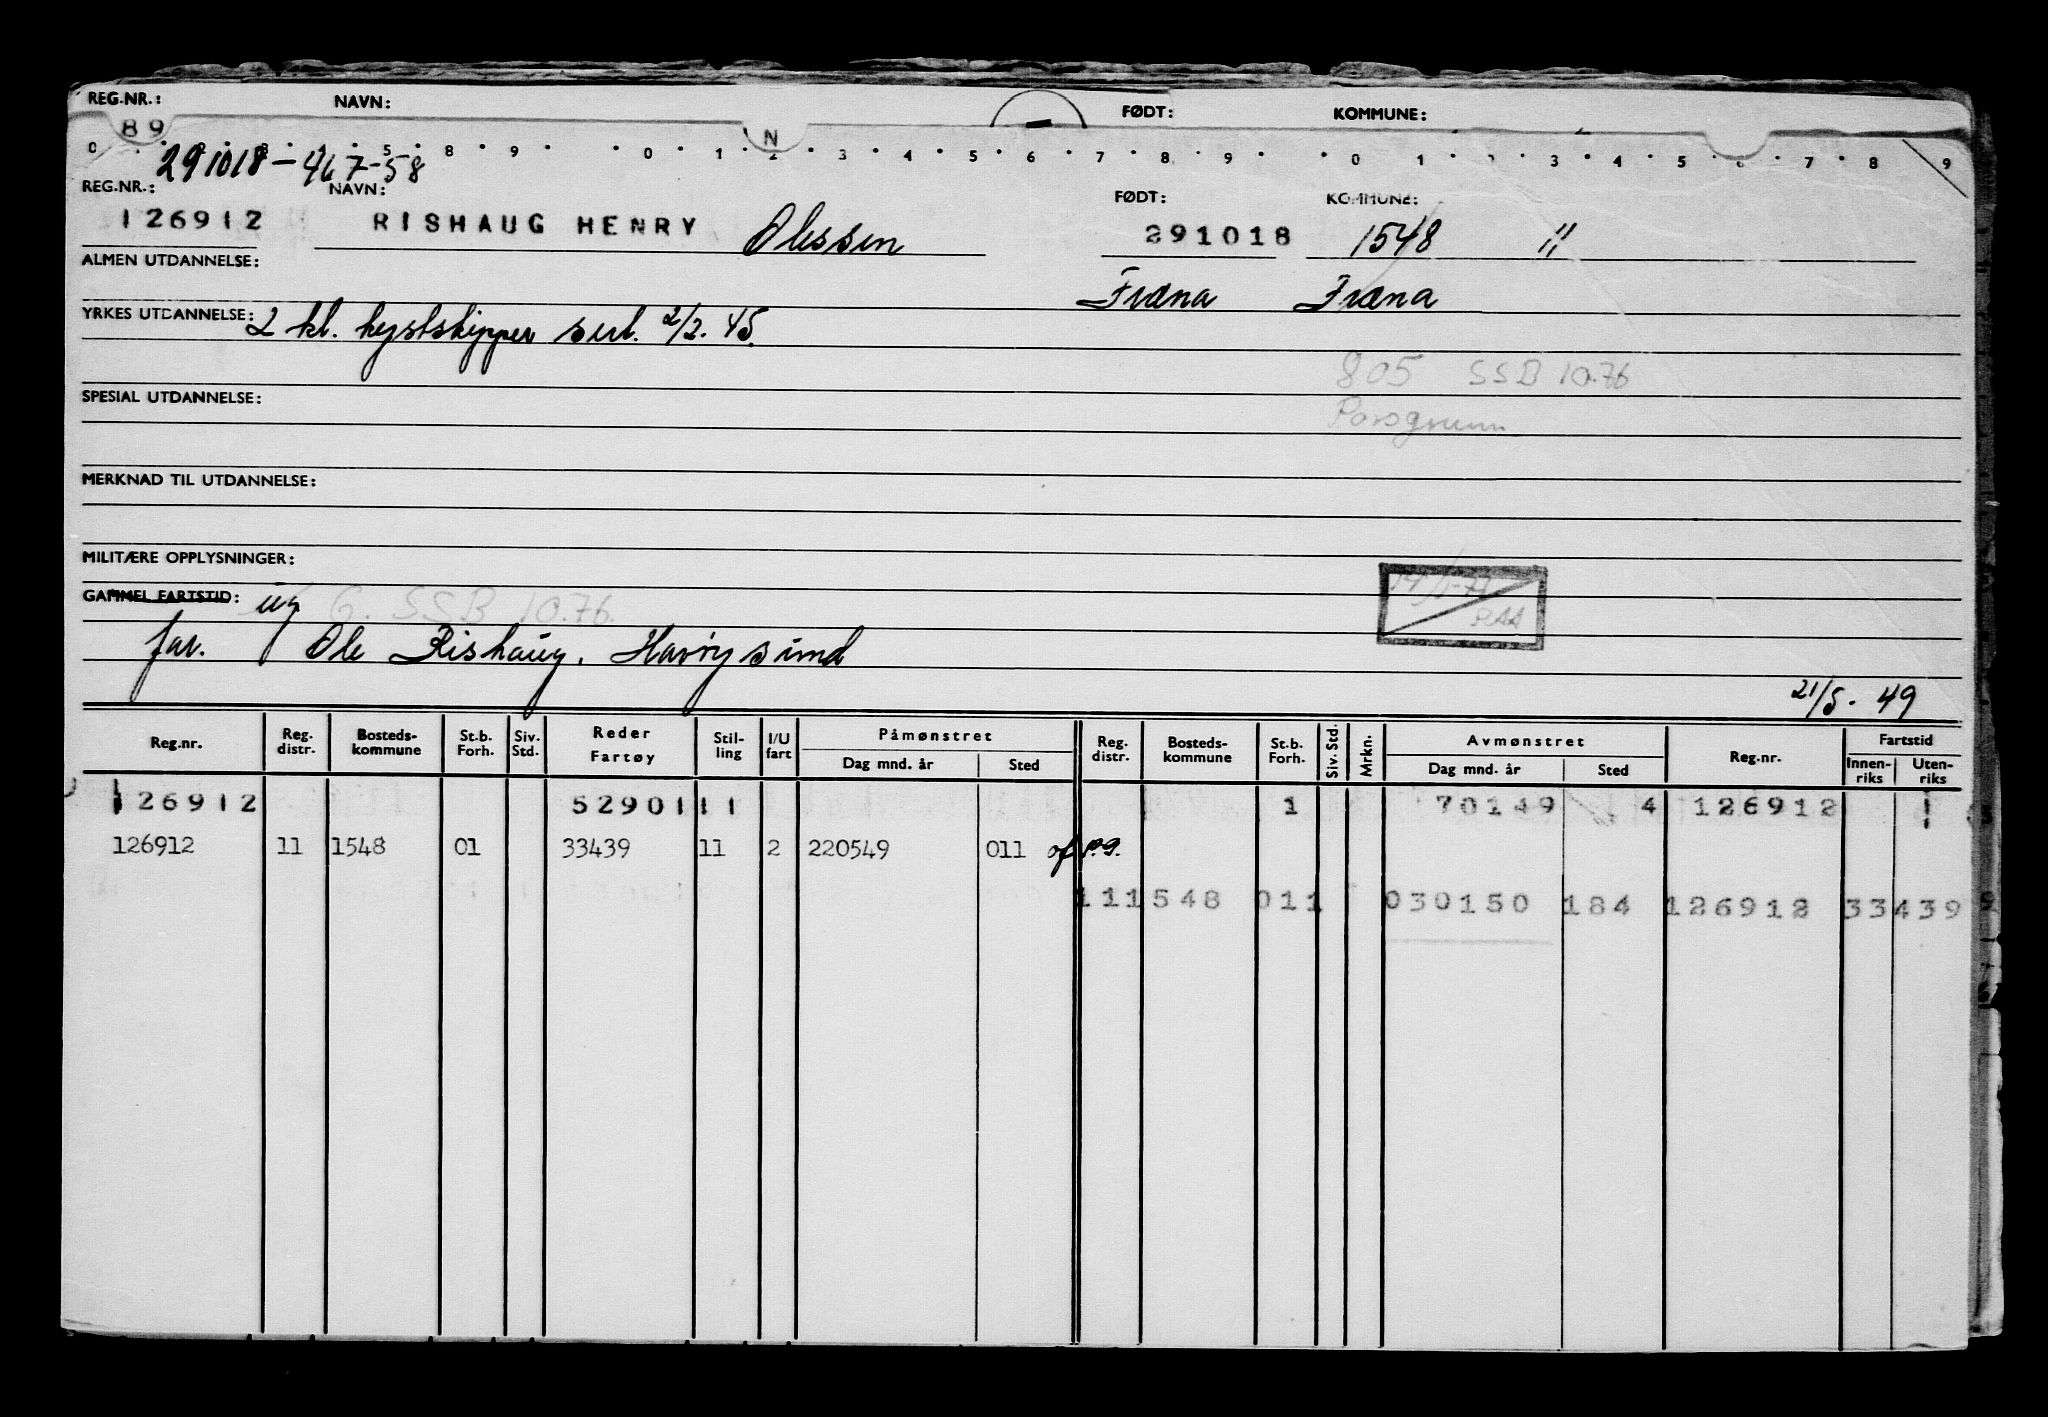 REG.NR.: NAVN: FØDT: KOMMUNE:
89 N
0 5 8 9 0 1 2 3 4 5 6 7 8 9 0 1 2 3 4 5 6 7 8 9
291018-467-58
REG.NR.: NAVN: FØDT: KOMMUNE:
126912 RISHAUG HENRY Olessen 291018 1548 11
ALMEN UTDANNELSE:
Fræna Fræna
YRKES UTDANNELSE: 2 kl. kystskipper sert. 2/2.45.
805 SSB 10.76
SPESIAL UTDANNELSE:
Porsgrunn
MERKNAD TIL UTDANNELSE:
MILITÆRE OPPLYSNINGER:
GAMMEL FARTSTID: ug G. SSB 10.76.
far. Ole Rishaug, Havøysund
21/5-49
Reg.nr. Reg. distr. Bosteds-kommune St.b. Forh. Siv. Std. Reder Fartøy Stil-ling I/U fart Påmønstret Dag mnd. år Sted Reg. distr. Bosteds-kommune St.b. Forh. Siv. Std. Mrkn. Avmønstret Dag mnd. år Sted Reg.nr. Fartstid Innen-riks Uten-riks
126912 5290111 1 70149 4 126912 1
126912 11 1548 01 33439 11 2 220549 011
111548 011 030150 184 126912 33439